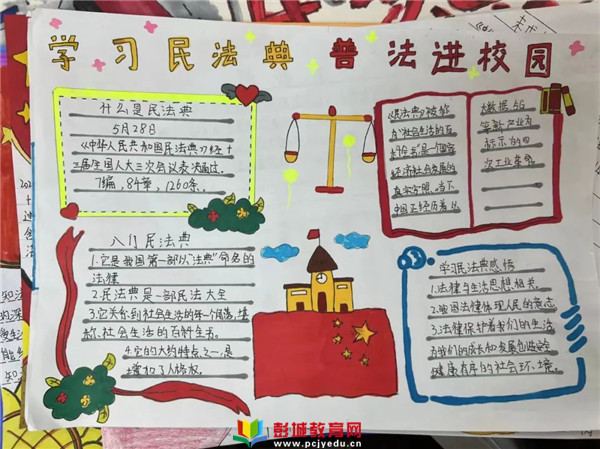 学习民法典 普法进校园
什么是民法典
5月28日
《中华人民共和国民法典》经十
三届全国人大三次会议表决通过。
7编，84章，1260条。
入门民法典
1.它是我国第一部以"法典"命名的
法律
2.民法典是一部民法大全
3.它关系到社会生活的每一个角落，堪
称社会生活的百科全书。
4.它的大的特点之一，是
增加了人格权。
《民法典》被称
为"社会生活的百
科全书"是一个国家
经济社会发展的
真实写照。当下
中国正经历着以
大数据5G
等新工业为
标示的四
次工业革命
学习民法典感悟
1.法律与生活息息相关。
法律体现人民的意志
3.法律保护着我们的生活
为我们的成长和发展创造
健康有序的社会环境。
彭城教育网
www.pcjyedu.cn